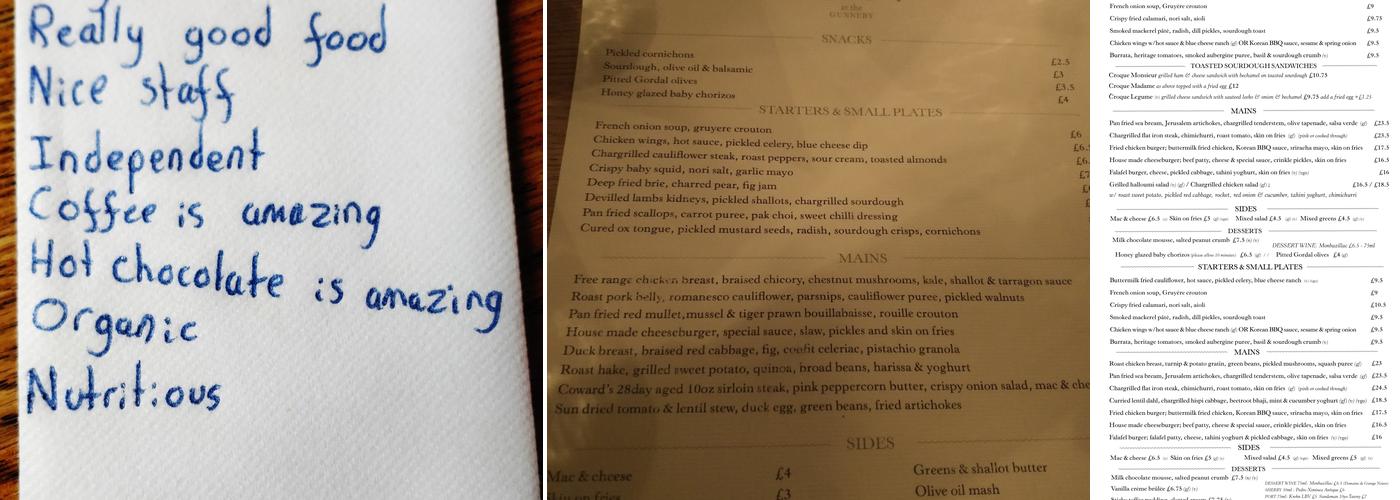 Really good food
Nice staff
Independent
Coffee is amazing
Hot chocolate is amazing
Organic
Nutritious
at the
GUNNERY
SNACKS
Pickled cornichons £2.5
Sourdough, olive oil & balsamic £3
Pitted Gordal olives £3.5
Honey glazed baby chorizos £4
STARTERS & SMALL PLATES
French onion soup, gruyere crouton £6
Chicken wings, hot sauce, pickled celery, blue cheese dip
Chargrilled cauliflower steak, roast peppers, sour cream, toasted almonds
Crispy baby squid, nori salt, garlic mayo
Deep fried brie, charred pear, fig jam
Devilled lambs kidneys, pickled shallots, chargrilled sourdough
Pan fried scallops, carrot puree, pak choi, sweet chilli dressing
Cured ox tongue, pickled mustard seeds, radish, sourdough crisps, cornichons
MAINS
Free range chicken breast, braised chicory, chestnut mushrooms, kale, shallot & tarragon sauce
Roast pork belly, romanesco cauliflower, parsnips, cauliflower puree, pickled walnuts
Pan fried red mullet, mussel & tiger prawn bouillabaisse, rouille crouton
House made cheeseburger, special sauce, slaw, pickles and skin on fries
Duck breast, braised red cabbage, fig, confit celeriac, pistachio granola
Roast hake, grilled sweet potato, quinoa, broad beans, harissa & yoghurt
Coward's 28day aged 10oz sirloin steak, pink peppercorn butter, crispy onion salad, mac & che
Sun dried tomato & lentil stew, duck egg, green beans, fried artichokes
SIDES
Mac & cheese £4 Greens & shallot butter
Skin on fries £3 Olive oil mash
French onion soup, Gruyère crouton £9
Crispy fried calamari, nori salt, aioli £9.75
Smoked mackerel pâté, radish, dill pickles, sourdough toast £9.5
Chicken wings w/hot sauce & blue cheese ranch (g) OR Korean BBQ sauce, sesame & spring onion £9.5
Burrata, heritage tomatoes, smoked aubergine puree, basil & sourdough crumb (v) £9.5
TOASTED SOURDOUGH SANDWICHES
Croque Monsieur grilled ham & cheese sandwich with bechamel on toasted sourdough £10.75
Croque Madame as above topped with a fried egg £12
Croque Legume (v) grilled cheese sandwich with sauteed leeks & onion & bechamel £9.75 add a fried egg +£1.25
MAINS
Pan fried sea bream, Jerusalem artichokes, chargrilled tenderstem, olive tapenade, salsa verde (gf) £23.5
Chargrilled flat iron steak, chimichurri, roast tomato, skin on fries (gf) (pink or cooked through) £23.5
Fried chicken burger; buttermilk fried chicken, Korean BBQ sauce, sriracha mayo, skin on fries £17.5
House made cheeseburger; beef patty, cheese & special sauce, crinkle pickles, skin on fries £16.5
Falafel burger, cheese, pickled cabbage, tahini yoghurt, skin on fries (v) (vgo) £16
Grilled halloumi salad (v) (gf) / Chargrilled chicken salad (gf) £16.5 / £18.5
w/ roast sweet potato, pickled red cabbage, rocket, red onion & cucumber, tahini yoghurt, chimichurri
SIDES
Mac & cheese £6.5 (v) Skin on fries £5 (gf) (vgo) Mixed salad £4.5 (gf) (v) Mixed greens £4.5 (gf) (v)
DESSERTS
Milk chocolate mousse, salted peanut crumb £7.5 (v) (n)
DESSERT WINE Monbazillac £6.5 - 75ml
Honey glazed baby chorizos (please allow 10 minutes) £6.5 (gf) Pitted Gordal olives £4 (g)
STARTERS & SMALL PLATES
Buttermilk fried cauliflower, hot sauce, pickled celery, blue cheese ranch (v) (vgo) £9.5
French onion soup, Gruyère crouton £9
Crispy fried calamari, nori salt, aioli £10.5
Smoked mackerel pâté, radish, dill pickles, sourdough toast £9.5
Chicken wings w/hot sauce & blue cheese ranch (g) OR Korean BBQ sauce, sesame & spring onion £9.5
Burrata, heritage tomatoes, smoked aubergine puree, basil & sourdough crumb (v) £9.5
MAINS
Roast chicken breast, turnip & potato gratin, green beans, pickled mushrooms, squash puree (gf) £23
Pan fried sea bream, Jerusalem artichokes, chargrilled tenderstem, olive tapenade, salsa verde (gf) £23.5
Chargrilled flat iron steak, chimichurri, roast tomato, skin on fries (gf) (pink or cooked through) £24.5
Curried lentil dahl, chargrilled hispi cabbage, beetroot bhaji, mint & cucumber yoghurt (gf) (v) (vgo) £18.5
Fried chicken burger; buttermilk fried chicken, Korean BBQ sauce, sriracha mayo, skin on fries £17.5
House made cheeseburger; beef patty, cheese & special sauce, crinkle pickles, skin on fries £16.5
Falafel burger; falafel patty, cheese, tahini yoghurt & pickled cabbage, skin on fries (v) (vgo) £16
SIDES
Mac & cheese £6.5 (v) Skin on fries £5 (gf) (v) Mixed salad £4.5 (gf) (vgo) Mixed greens £5 (gf) (v)
DESSERTS
Milk chocolate mousse, salted peanut crumb £7.5 (v) (n)
Vanilla crème brûlée £6.75 (gf) (v)